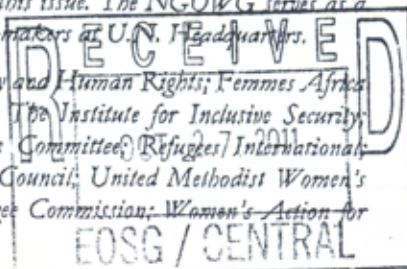 this issue. The NGOWG serves as a
makers at U.N. Headquarters.
RECEIVED
and Human Rights; Femmes Africa
The Institute for Inclusive Security;
Committee; Refugees International;
2011
Council; United Methodist Women's
Commission; Women's Action for
EOSG / CENTRAL